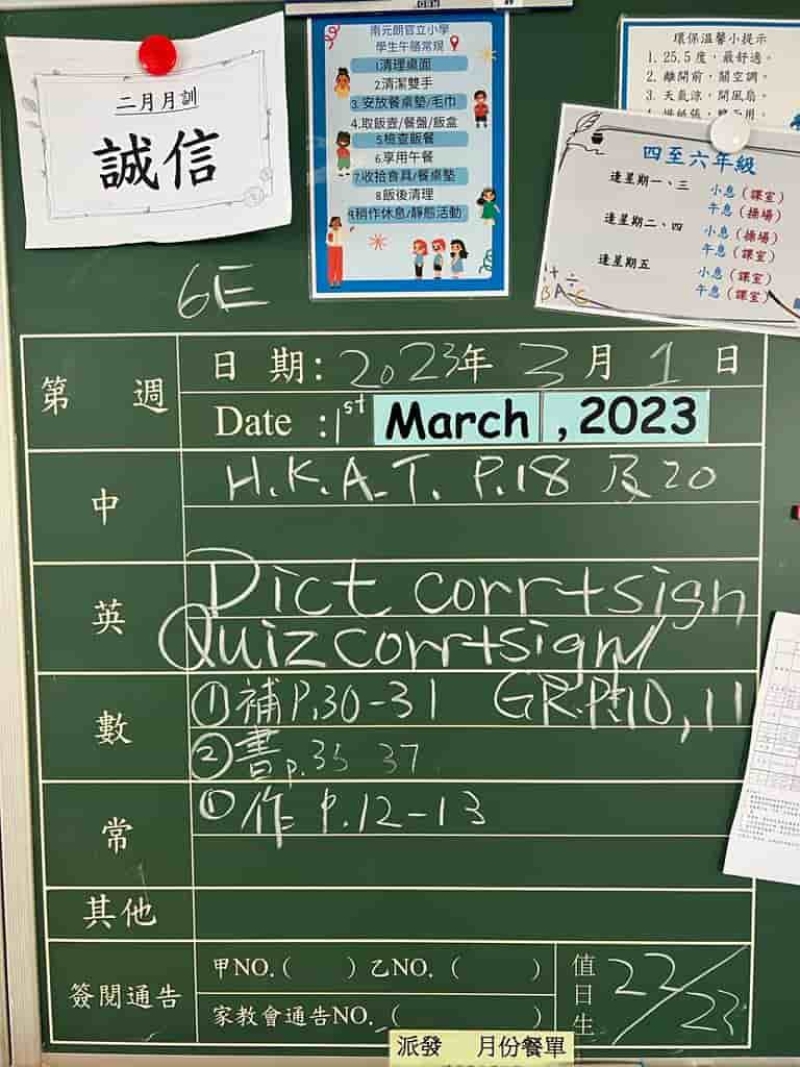 二月月訓
誠信
南元朗官立小學
學生午膳常規
1.清理桌面
2.清潔雙手
3.安放餐桌墊/毛巾
4.取飯壺/餐盤/飯盒
5.檢查飯餐
6.享用午餐
7.收拾食具/餐桌墊
8.飯後清理
9.稍作休息/靜態活動
環保溫馨小提示
1. 25.5度，最舒適。
2. 離開前，關空調。
3. 天氣涼，開風扇。
四至六年級
逢星期一、三
小息（課室）
午息（操場）
逢星期二、四
小息（操場）
午息（課室）
逢星期五
小息（課室）
午息（課室）
6E
第 週
日 期: 2023年 3月 1日
Date : 1st March , 2023
中
H.K.A.T. P.18 及 20
英
Dict corr+sign
Quiz corr+sign
數
①補P.30-31 GR.P.10, 11
②書p.35 37
常
①作 P.12-13
其他
簽閱通告
甲NO. ( ) 乙NO. ( )
家教會通告NO. ( )
值日生
22/23
派發 月份餐單